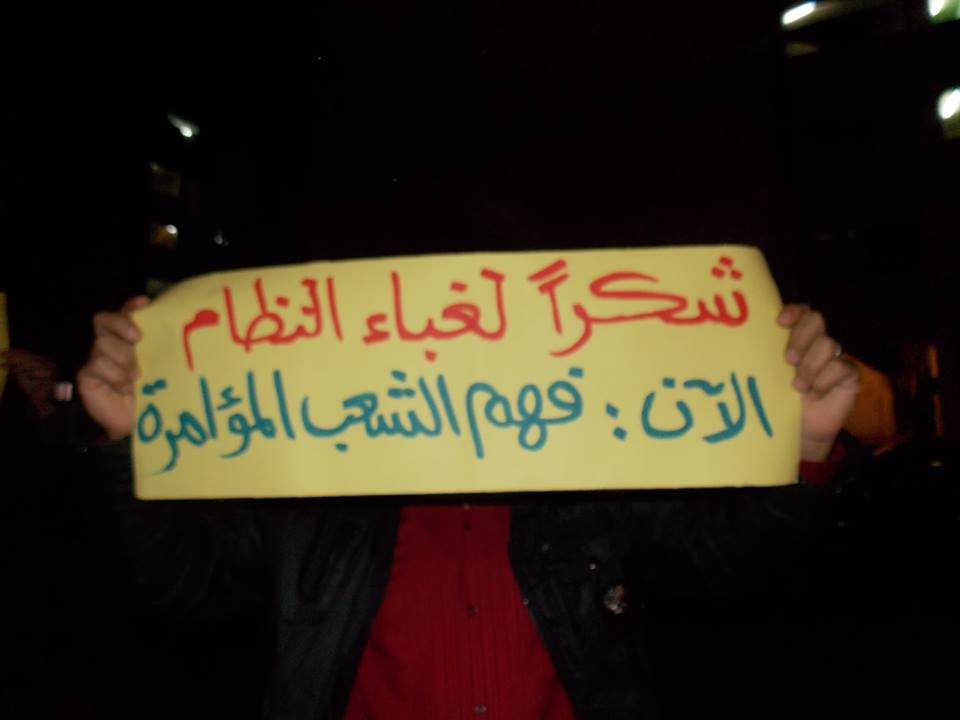 شكراً لغباء النظام
الآن : فهم الشعب المؤامرة